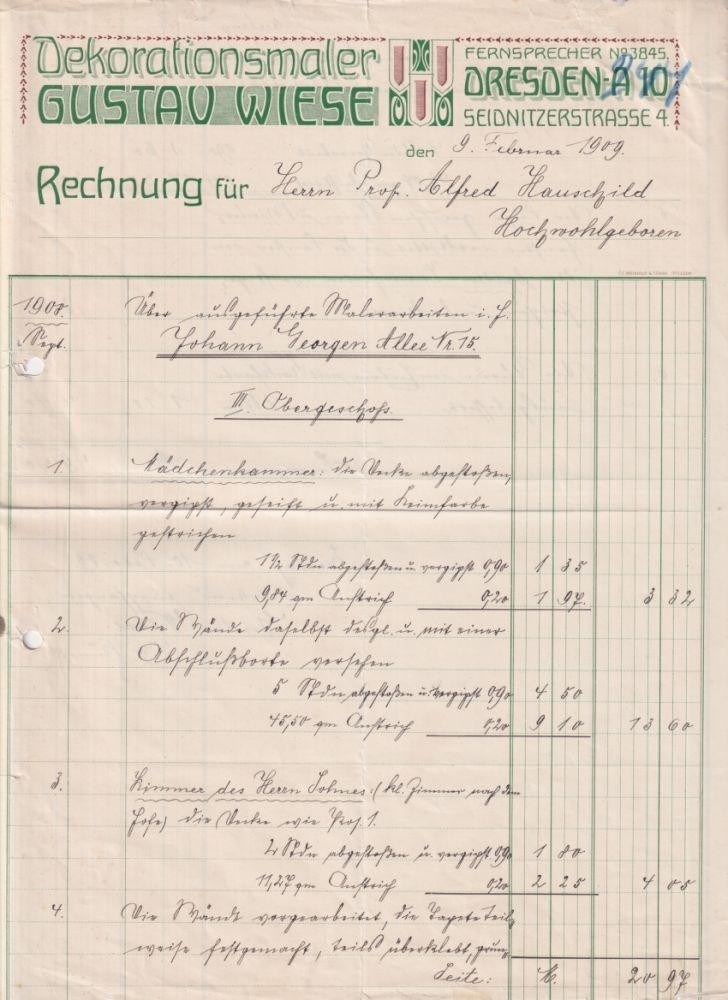 Dekorationsmaler
GUSTAV WIESE
FERNSPRECHER No 3845.
DRESDEN-A 10
SEIDNITZERSTRASSE 4.
den 9. Februar 1909.
Rechnung für Herrn Prof. Alfred Hauschild
Hochwohlgeboren
1908. Über ausgeführte Malerarbeiten i. H.
Sept. Johann Georgen Allee Nr. 15.
III. Obergeschoß.
1. Mädchenkammer: die Decke abgestoßen,
vergipst, geseift u. mit Leimfarbe
gestrichen
1 1/2 Stdn abgestoßen u. vergipst 0,90 1 35
9,84 qm Anstrich 0,20 1 97. 3 32
2. Die Wände daselbst desgl. u. mit einer
Abschlußborte versehen
5 Stdn abgestoßen u. vergipst 0,90 4 50
45,50 qm Anstrich 0,20 9 10 13 60
3. Zimmer des Herrn Sohnes: (kl. Zimmer nach dem
Hofe) die Decke wie Pos. 1.
2 Stdn abgestoßen u. vergipst 0,90 1 80
11,27 qm Anstrich 0,20 2 25 4 05
4. Die Wände vorgearbeitet, die Tapete teil-
weise festgemacht, teils überklebt,
Seite: M. 20 97